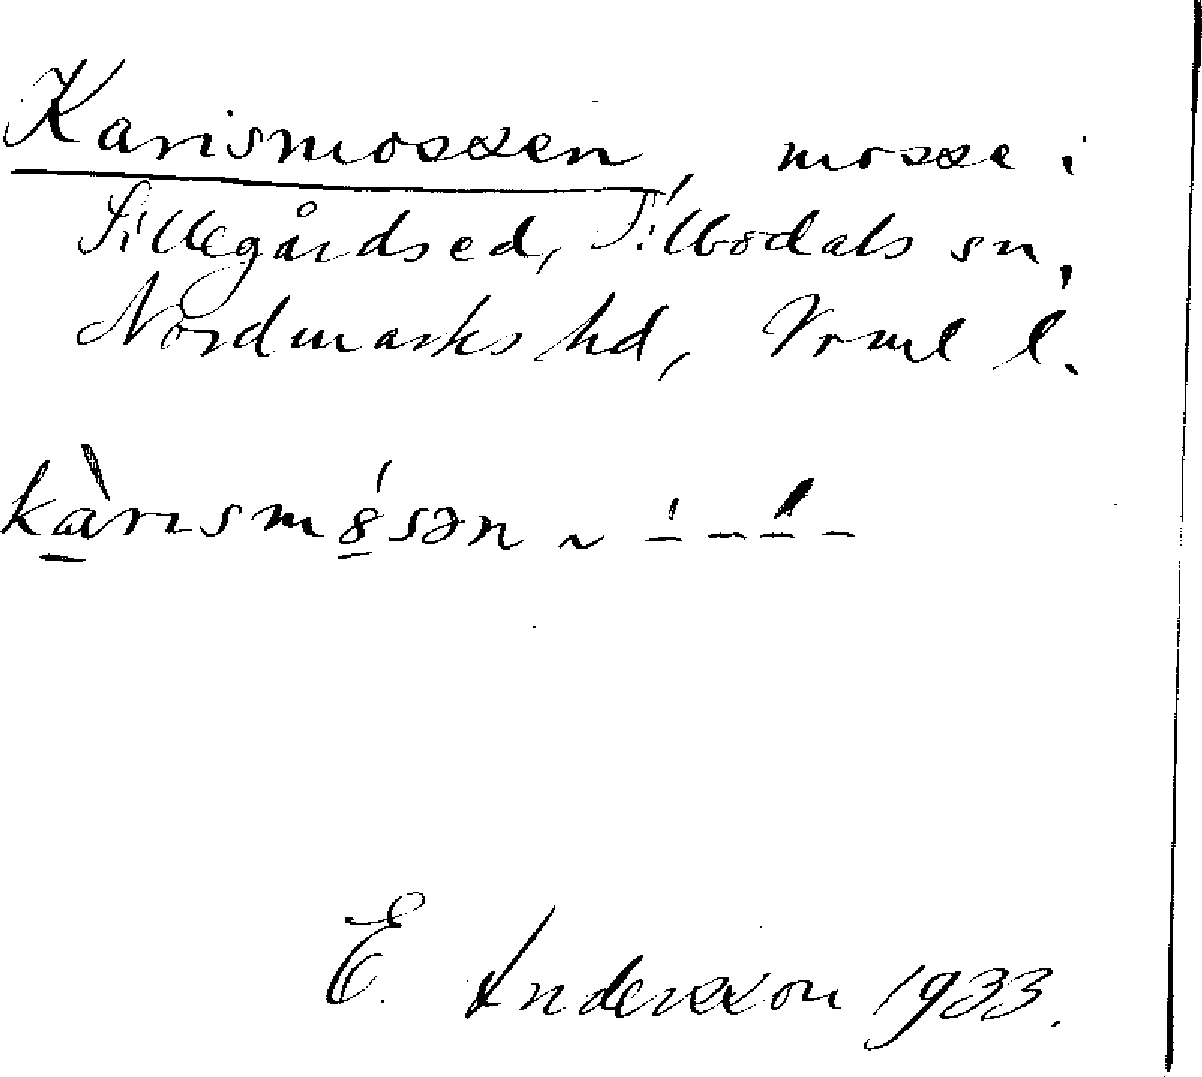 Karismossen, mosse i
Sillegårdsed, Sillbodals sn,
Nordmarks hd, Vrml l.
kàrısmó̱sən ~ – – – –
E. Andersson 1933.